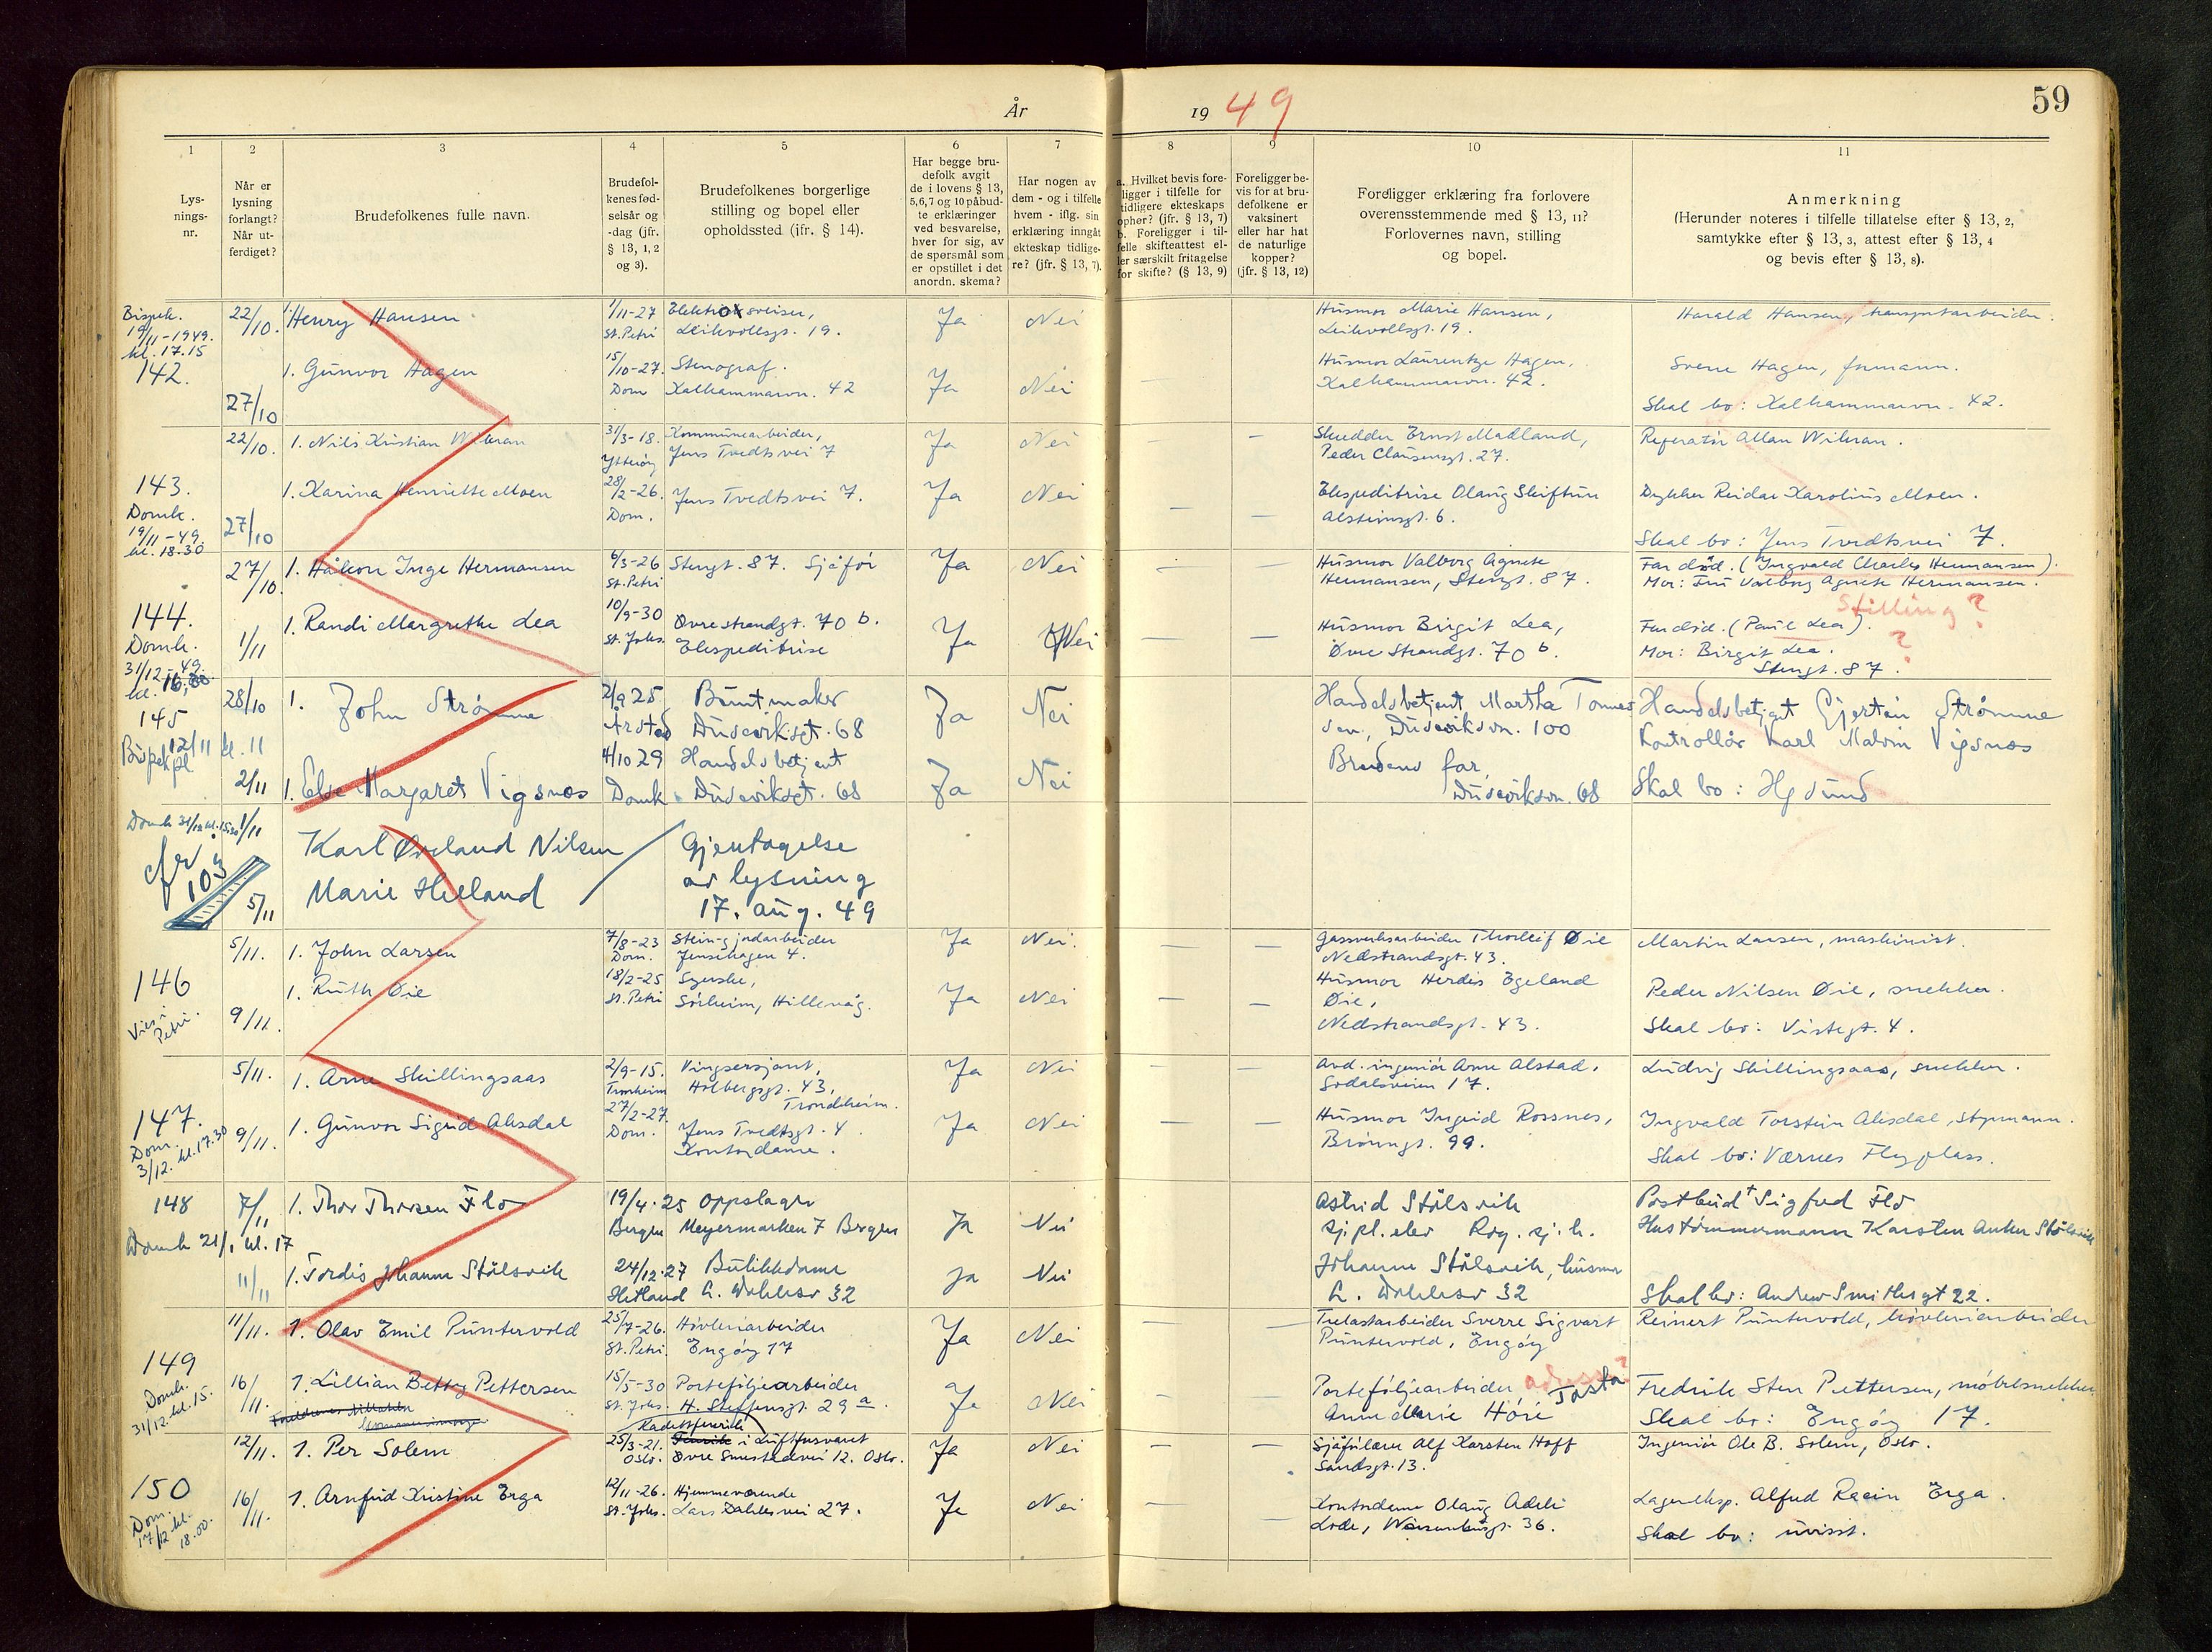 59
År 1949
1
2
3
4
5
6
7
8
9
10
11
Lys-
nings-
nr.
Når er
lysning
forlangt?
Når ut-
ferdiget?
Brudefolkenes fulle navn.
Brudefol-
kenes fød-
selsår og
-dag (jfr.
§ 13, 1, 2
og 3).
Brudefolkenes borgerlige
stilling og bopel eller
opholdssted (jfr. § 14).
Har begge bru-
defolk avgit
de i lovens § 13,
5,6,7 og 10 påbud-
te erklæringer
ved besvarelse,
hver for sig, av
de spørsmål som
er opstillet i det
anordn. skema?
Har nogen av
dem - og i tilfelle
hvem - iflg. sin
erklæring inngåt
ekteskap tidlige-
re? (jfr. § 13, 7).
a. Hvilket bevis fore-
ligger i tilfelle for
tidligere ekteskaps
ophør? (jfr. § 13, 7)
b. Foreligger i til-
felle skifteattest el-
ler særskilt fritagelse
for skifte? (§ 13, 9)
Foreligger be-
vis for at bru-
defolkene er
vaksinert
eller har hat
de naturlige
kopper?
(jfr. § 13, 12)
Foreligger erklæring fra forlovere
overensstemmende med § 13, 11?
Forlovernes navn, stilling
og bopel.
Anmerkning
(Herunder noteres i tilfelle tillatelse efter § 13, 2,
samtykke efter § 13, 3, attest efter § 13, 4
og bevis efter § 13, 8).
Bispek.
19/11-1949.
kl. 17.15
142.
22/10.
1. Henry Hansen
1/11-27
St. Petri
Ja
Nei
Husmor Marie Hansen,
Harald Hansen, transportarbeider.
27/10
1. Gunvor Hagen
15/10-27.
Dom
Stenograf.
Kalhammarvn. 42
Ja
Nei
Husmor Laurentze Hagen,
Kalhammarvn. 42.
Sverre Hagen, formann.
Skal bo: Kalhammarvn. 42.
143.
Domk.
19/11-49.
kl. 18.30
22/10.
1. Nils Kristian Wikran
31/3-18.
Ytterøy
Kommunearbeider,
Jens Tvedts vei 7
Ja
Nei
Skredder Ernst Madland,
Peder Clausensgt. 27.
Allan Wikran.
27/10
1. Karina Henriette Moen
28/2-26.
Dom.
Jens Tvedts vei 7.
Ja
Nei
Ekspeditrise Olaug Skiftun
Alsteinsgt. 6.
Dykker Reidar Karolius Moen.
Skal bo: Jens Tvedts vei 7.
144.
Domk.
31/12-49.
27/10.
1. Håkon Inge Hermansen
6/3-26
St. Petri
Stengt. 87. Sjåfør
Ja
Nei
Husmor Valborg Agnete
Hermansen, Stengt. 87.
Far død. (Ingvald Charles Hermansen).
Mor: Fru Valborg Agnete Hermansen.
Stilling?
1/11
1. Randi Margrethe Lea
10/9-30
St. Johs.
Øvre strandgt. 70 b.
Ekspeditrise
Ja
Nei
Husmor Birgit Lea,
Øvre Strandgt. 70 b.
Far død. (Paul Lea).
?
Mor: Birgit Lea.
Stengt. 87.
145
Bispekpl 12/11 kl. 11
28/10
1. John Strømme
2/9 25
Årstad
Buntmaker
Dusavikgt. 68
Ja
Nei
Handelsbetjent Martha Tønnes
sen, Dusavikvn. 100
Handelsbetjent Gjertin Strømme
Kontrollør Karl Malvin Vigsnæs
2/11
1. Else Margaret Vigsnæs
4/10 29
Domk
Handelsbetjent
Dusavikgt. 68
Ja
Nei
Brudens far
Dusavikvn. 68
Skal bo: Hgsund
Domk 31/12 kl. 15.30
1/11
cfr 103
5/11
Karl Ørland Nilsen
Marie Helland
Gjentagelse
av lysning
17. aug. 49
146
Vies i
Petri.
5/11.
1. John Larsen
7/8-23
Dom.
Stein- jordarbeider
Jensehagen 4.
Ja
Nei.
Gassverksarbeider Thorleif Øie
Nedstrandsgt. 43.
Martin Larsen, maskinist.
9/11.
1. Ruth Øie
18/2-25
St. Petri
Syerske,
Solheim, Hillevåg.
Ja
Nei
Husmor Herdis Egeland
Øie,
Nedstrandsgt. 43.
Peder Nilsen Øie, snekker.
Skal bo: Vistegt. 4.
147.
Dom.
3/12. kl. 17.30
5/11.
1. Arne Skillingsaas
2/9-15.
Trondheim
Vingsersjant,
Holbergsgt. 43,
Trondheim.
Ja
Nei
Avd. ingeniør Arne Alstad,
Sodalsveien 17.
Ludvig Skillingsaas, snekker.
9/11.
1. Gunvor Sigrid Alsdal
27/2-27.
Dom.
Jens Tvedtsgt. 4
Kontordame.
Ja
Nei
Husmor Ingrid Rossnes,
Brønngt. 99.
Ingvald Torstein Alsdal, styrmann.
Skal bo: Værnes Flyplass.
148
Domk 21/1 kl. 17
7/11
1. Thor Thorsen Flo
19/4.25
Bergen
Oppslager
Meyermarken 7 Bergen
Ja
Nei
Astrid Stølsvik
sj.pl.elev Rog. sj.h.
Postbud † Sigfred Flo
Hustømmermann Karsten Anker Stølsvik
11/11
1. Tordis Johanne Stølsvik
24/12.27
Hetland
Butikkdame
Ja
Nei
Johanne Stølsvik, husmor
Skal bo: Andrew Smithsgt 22.
149
Domk.
31/12. kl. 15.
11/11.
1. Olav Emil Puntervold
25/7-26.
St. Petri.
Høvleriarbeider
Engøy 17
Ja
Nei
Trelastarbeider Sverre Sigvart
Puntervold, Engøy
Reinert Puntervold, høvleriarbeider
16/11.
1. Lillian Betty Pettersen
15/5-30
St. Johs.
Porteføljearbeider
H. Steffensgt. 29 a.
Ja
Nei
Porteføljearbeider adresse? Tasta
Anne Marie Høie
Fredrik Sten Pettersen, møbelsnekker
Skal bo: Engøy 17.
150
Dom.
17/12 kl.
18.00.
12/11.
1. Per Solem
25/3-21.
Oslo.
i Luftforsvaret
Øvre Smestadvei 12. Oslo.
Ja
Nei
Sjåførlærer Alf Karsten Hoff
Sandsgt. 13.
Ingeniør Ole B. Solem, Oslo.
16/11.
1. Arnfrid Kristine Erga
12/11-26.
St. Johs.
Hjemmeværende
Lars Dahles vei 27.
Ja
Nei
Kontordame Olaug Adele
Lode, 36.
Lagereksp. Alfred Racin Erga.
Skal bo: uvisst.